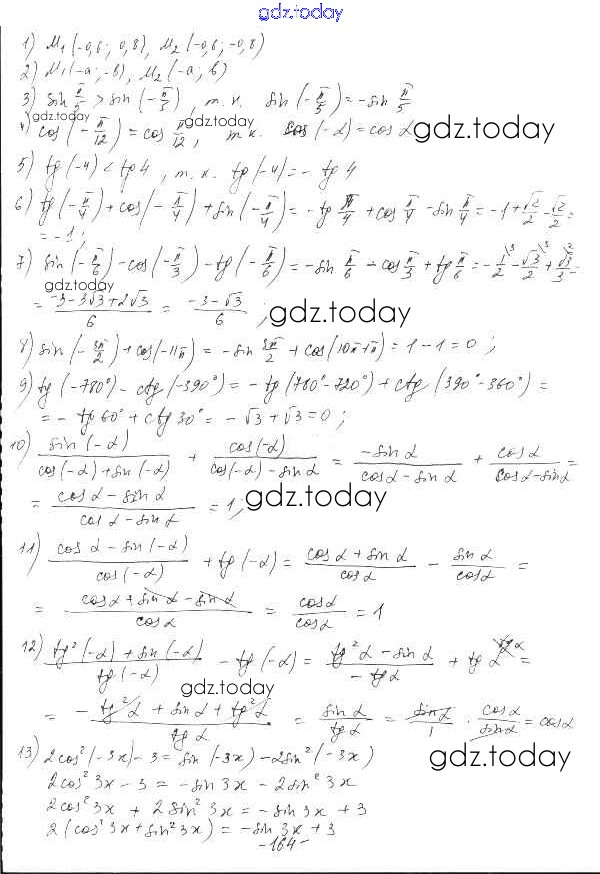 gdz.today
1) M₁(-0,6; 0,8), M₂(-0,6; -0,8)
2) M₁(-a; -b), M₂(-a; b)
3) sin π/5 > sin(-π/5), т.к. sin(-π/5) = -sin π/5
gdz.today
gdz.today
4) cos(-π/12) = cos π/12, т.к. cos(-α) = cos α
gdz.today
5) tg(-4) < tg 4, т.к. tg(-4) = -tg 4
6) tg(-π/4) + cos(-π/4) + sin(-π/4) = -tg π/4 + cos π/4 - sin π/4 = -1 + √2/2 - √2/2 =
= -1;
7) sin(-π/6) - cos(-π/3) - tg(-π/6) = -sin π/6 - cos π/3 + tg π/6 = -1/2 - √3/2 + √3/3 =
= (-3-3√3+2√3)/6 = (-3-√3)/6;
gdz.today
8) sin(-3π/2) + cos(-11π) = -sin 3π/2 + cos(10π+π) = 1-1 = 0;
9) tg(-780°) - ctg(-390°) = -tg(780°-720°) + ctg(390°-360°) =
= -tg 60° + ctg 30° = -√3 + √3 = 0;
10) sin(-α)/(cos(-α)+sin(-α)) + cos(-α)/(cos(-α)-sin α) = -sin α/(cos α - sin α) + cos α/(cos α - sin α) =
= (cos α - sin α)/(cos α - sin α) = 1;
gdz.today
11) (cos α - sin(-α))/cos(-α) + tg(-α) = (cos α + sin α)/cos α - sin α/cos α =
= (cos α + sin α - sin α)/cos α = cos α/cos α = 1
12) (tg²(-α) + sin(-α))/tg(-α) - tg(-α) = (tg²α - sin α)/(-tg α) + tg α =
gdz.today
= (-tg²α + sin α + tg²α)/tg α = sin α/tg α = sin α/1 · cos α/sin α = cos α
13) 2cos²(-3x) - 3 = sin(-3x) - 2sin²(-3x)
gdz.today
2cos² 3x - 3 = -sin 3x - 2sin² 3x
2cos² 3x + 2sin² 3x = -sin 3x + 3
2(cos² 3x + sin² 3x) = -sin 3x + 3
-164-